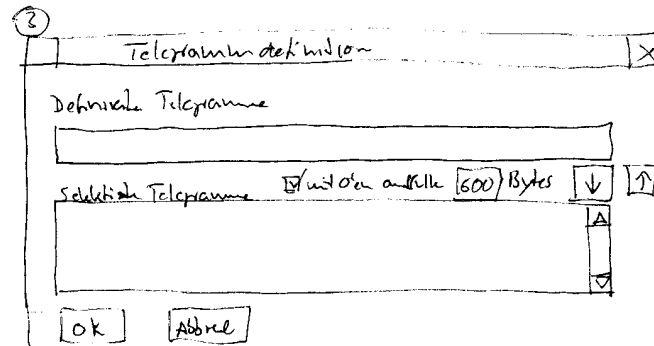 3
Telegrammdefinition X
Definierte Telegramme
Selektierte Telegramme mit 0'en auffülle 600 Bytes ↓ ↑
OK Abbrel